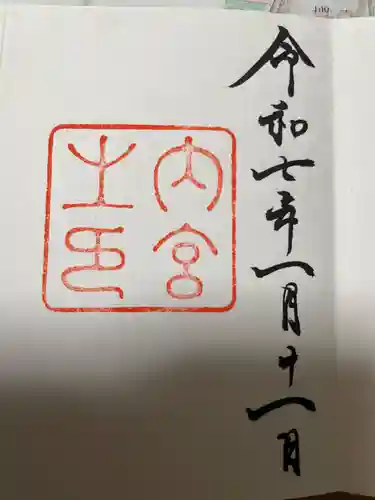 令和七年一月十一日
内宮
之印